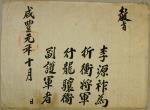 敎旨
李源祚爲
折衝將軍
行龍驤衛
副護軍者
咸豐元年十月 日